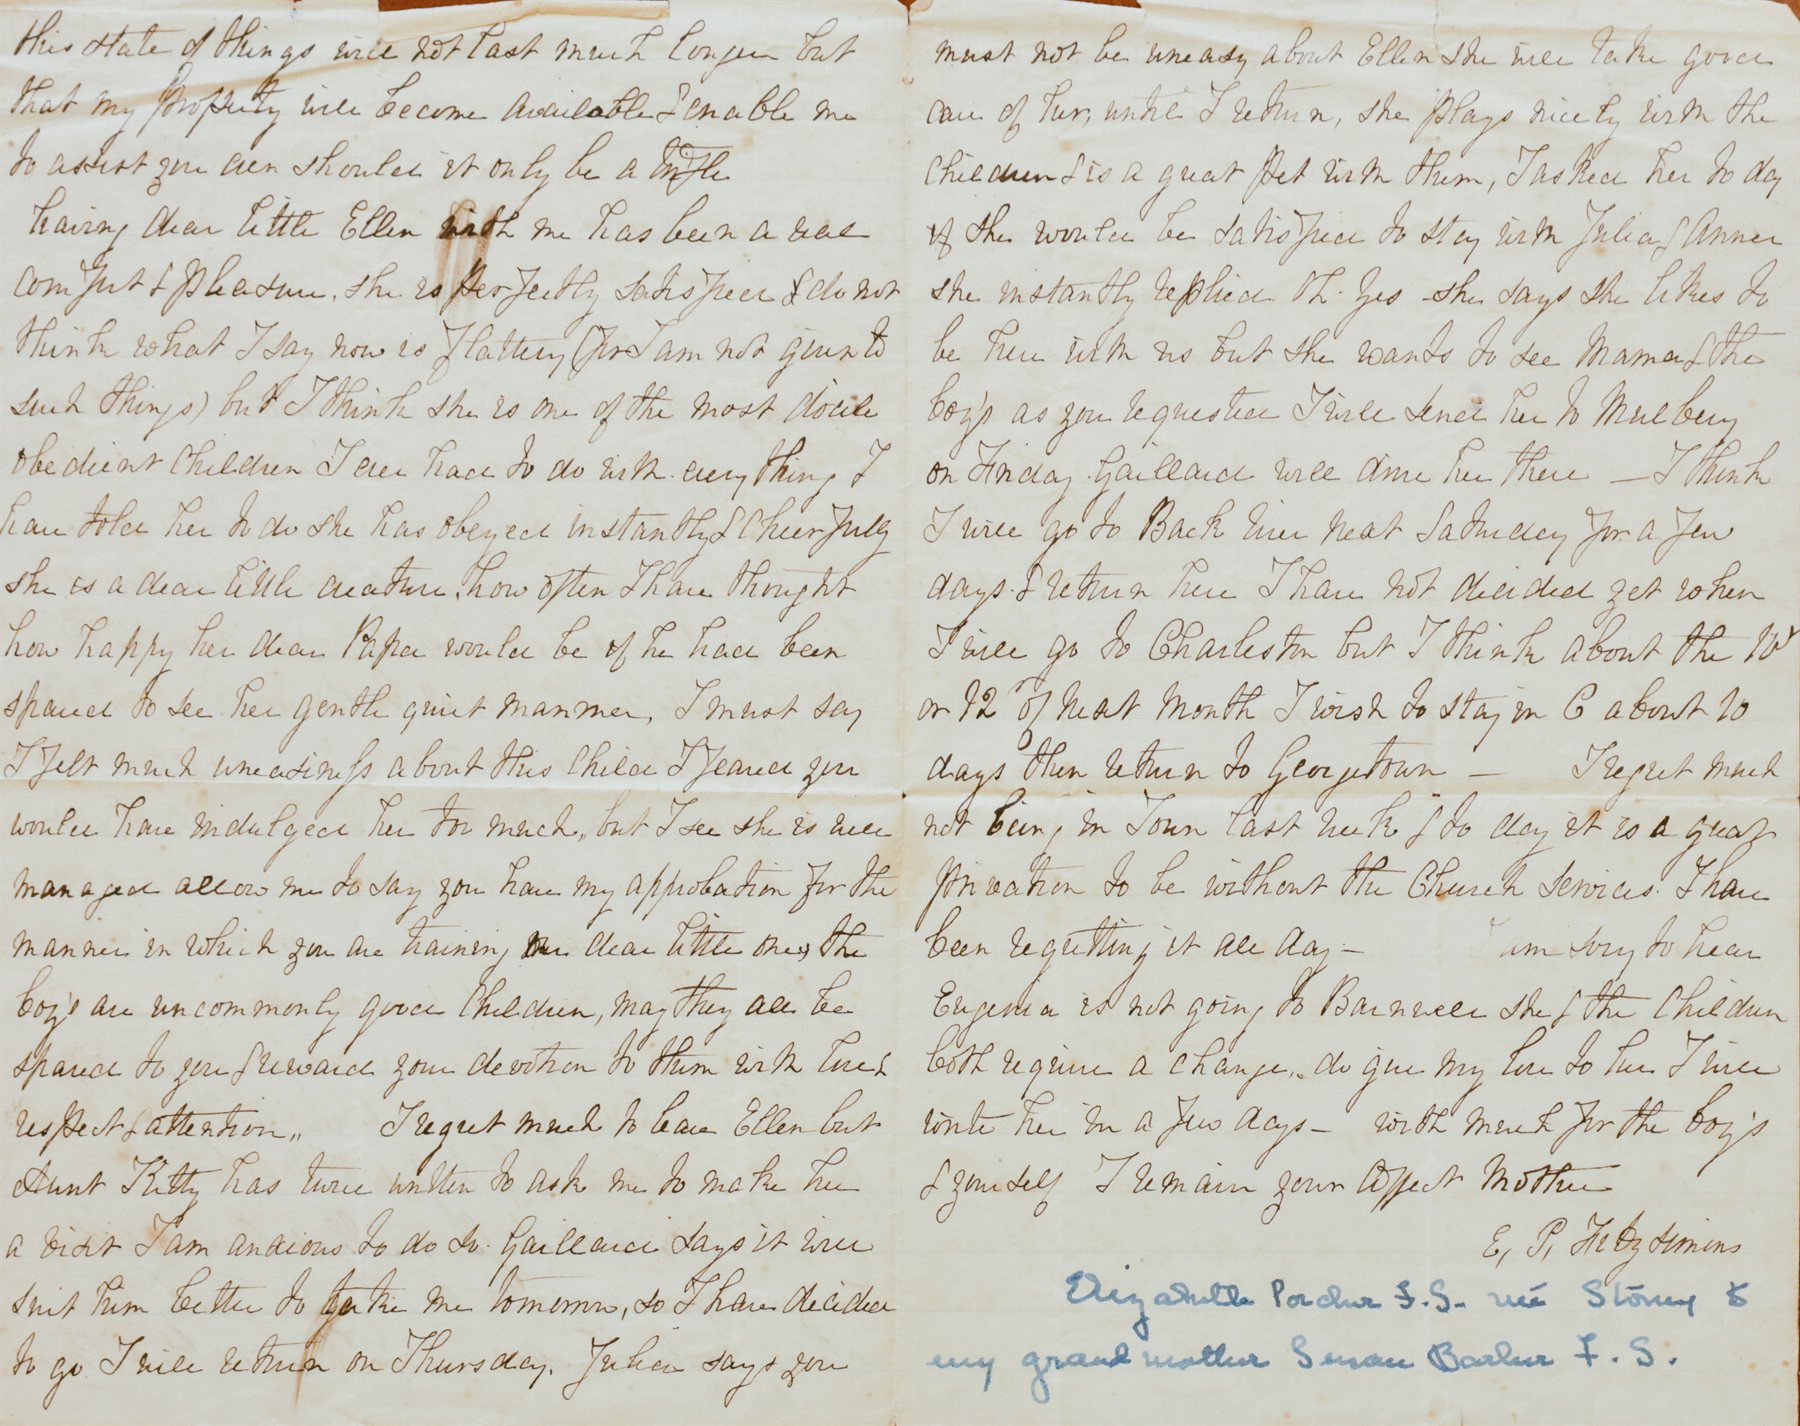 this state of things will not last much longer but
that my property will become available & enable me
to assist you even should it only be a little
having dear little Ellen with me has been a real
comfort & pleasure, she is perfectly satisfied & do not
think what I say now is flattery (for I am not given to
such things) but I think she is one of the most docile
obedient children I ever had to do with every thing I
have told her to do she has obeyed instantly & cheerfully
she is a dear little creature, how often I have thought
how happy her dear Papa would be if he had been
spared to see her gentle quiet manner, I must say
I felt much uneasiness about this child I feared you
would have indulged her too much, but I see she is well
managed allow me to say you have my approbation for the
manner in which you are training our dear little ones, the
boy's are uncommonly good children, may they all be
spared to you & reward your devotion to them with love &
respect & attention,, I regret much to leave Ellen but
Aunt Kitty has twice written to ask me to make her
a visit I am anxious to do so. Gaillard says it will
suit him better to take me tomorrow, so I have decided
to go I will return on Thursday. Julia says you
must not be uneasy about Ellen she will take good
care of her, until I return, she plays nicely with the
children & is a great pet with them, I asked her to day
if she would be satisfied to stay with Julia & Anner
she instantly replied Oh. Yes - she says she likes to
be here with us but she wants to see Mama & the
boy's as you requested I will send her to Mulbery
on Friday. Gaillard will drive her there — I think
I will go to Back River next Saturday for a few
days. & return here I have not decided yet when
I will go to Charleston but I think about the 10
or 12 of next month I wish to stay in C about 10
days then return to Georgetown — I regret much
not being in Town last week & to day it is a great
privation to be without the Church services. I have
been regretting it all day — I am sory to hear
Eugenia is not going to Barnwell she & the children
both require a change, do give my love to her I will
write her in a few days — with much for the boy's
& yourself I remain your affect Mother
E, P, Fitzsimons
Elizabeth Porcher F.S. née Stoney to
my grandmother Susan Barker F. S.